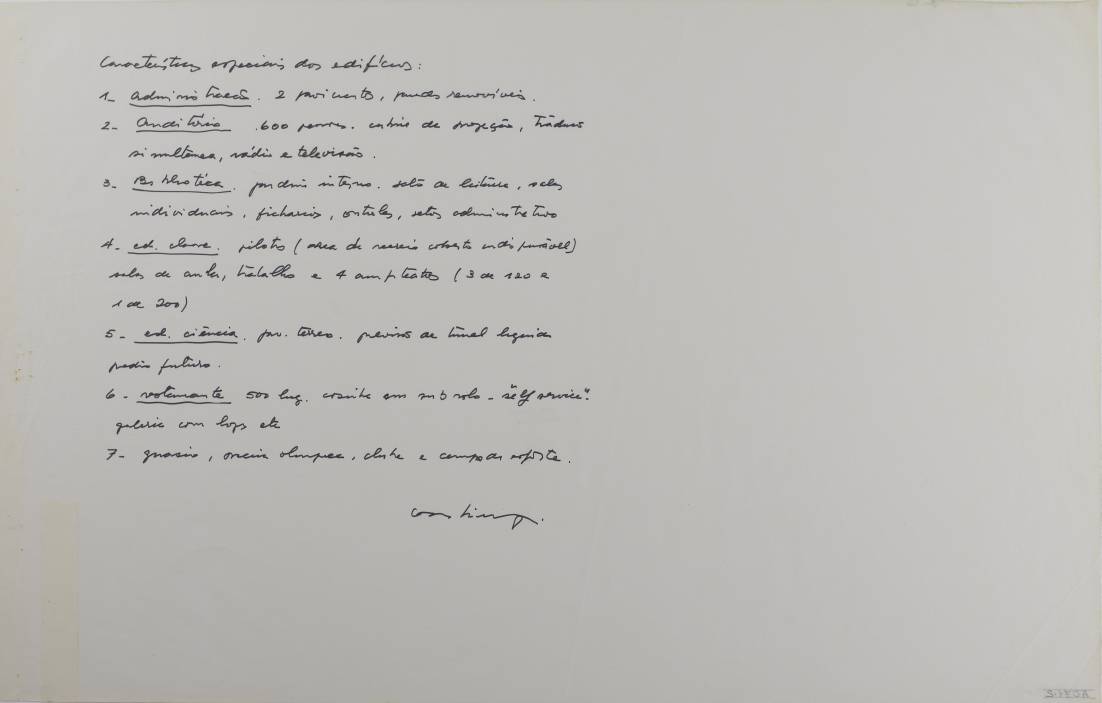 Características especiais dos edifícios:
1- Administração. 2 pavimentos, paredes removíveis.
2- Auditório .600 pessoas. cabine de projeção, tradução
simultânea, rádio e televisão.
3- Biblioteca. jardim interno. salão de leitura, salas
individuais, fichários, controles, setor administrativo
4- ed. classe. pilotis (area de recreio coberto indispensável)
salas de aula, trabalho e 4 amfiteatros (3 de 120 e
1 de 200)
5- ed. ciência. pav. terreo. previsão de tunel ligando
predio futuro.
6- restaurante 500 lug. cosinha em subsolo - "self service".
galeria com lojas etc
7- ginasio, piscina olimpica, clube e campo de esporte.